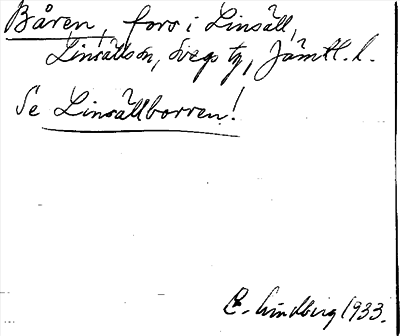 Båren, fors i Linsäll,
Linsällsån, Svegs tg, Jämtl. l.
Se Linsällborren!
C. Lindberg 1933.